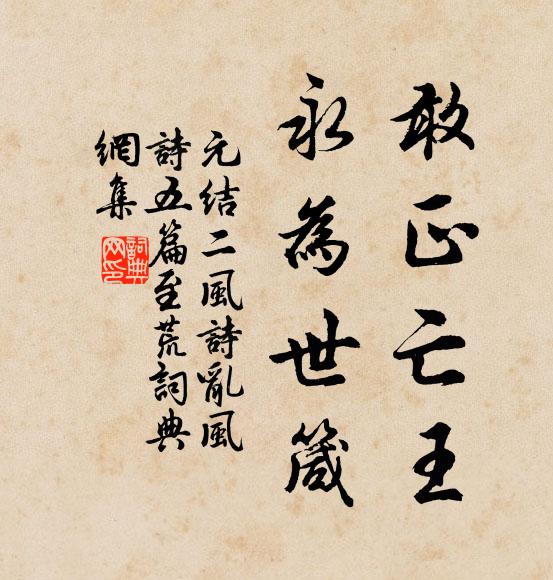 敢正亡王
永為世箴
元結二風詩亂風
詩五篇至荒詞典
網集
詞典
网印